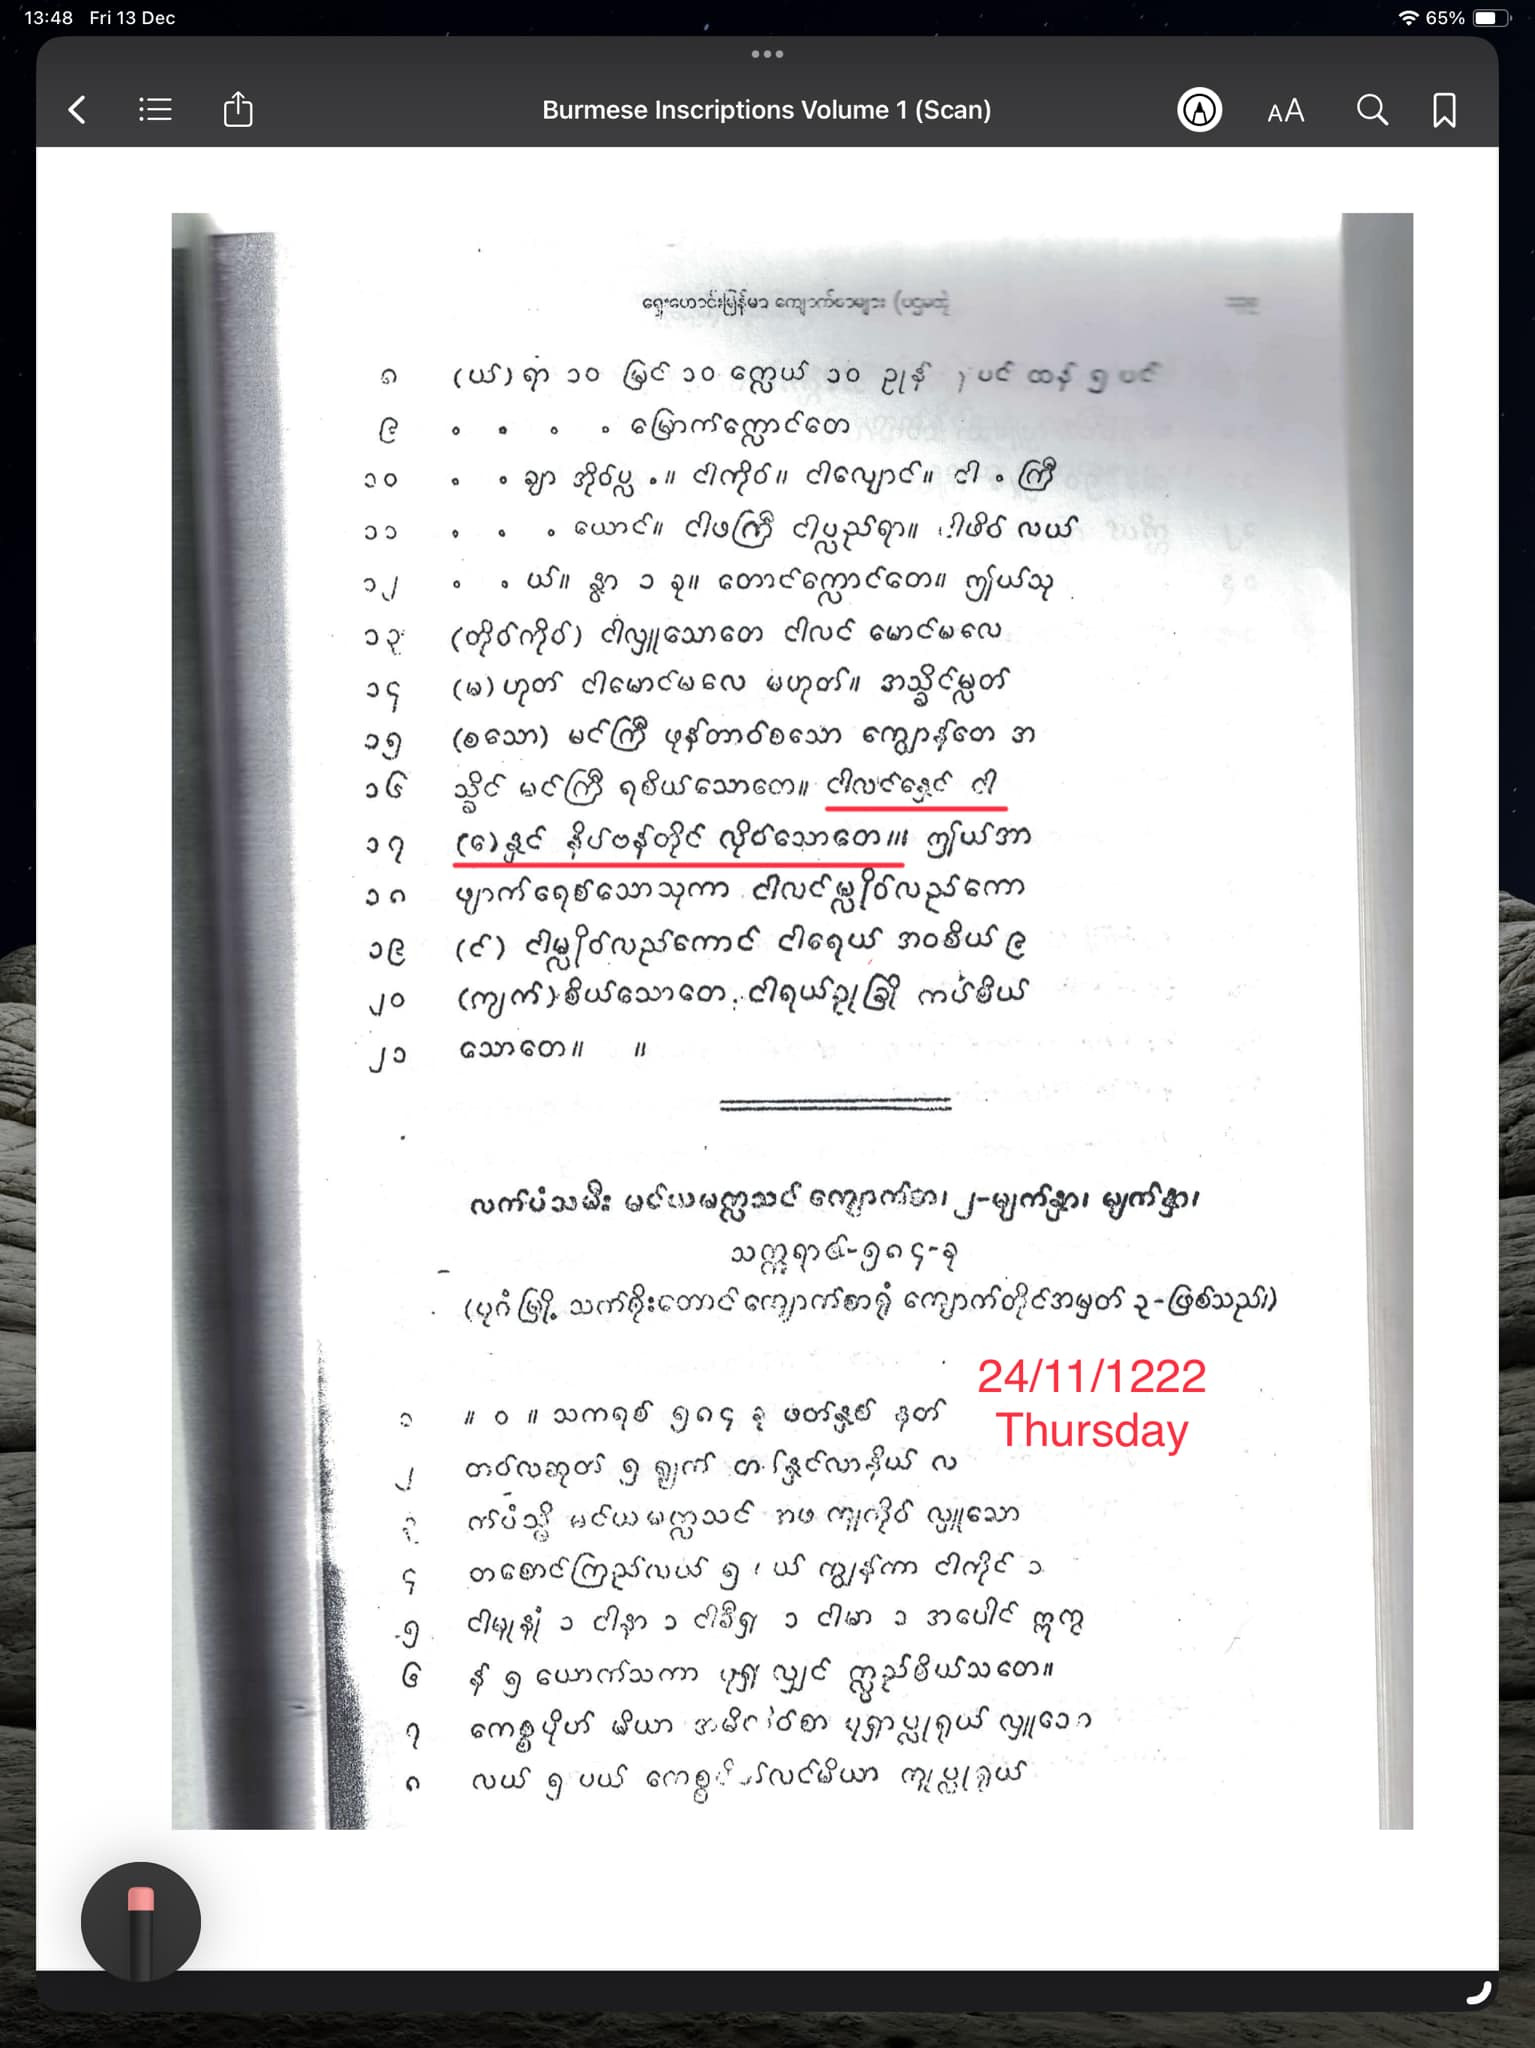 13:48 Fri 13 Dec
65%
Burmese Inscriptions Volume 1 (Scan)
AA
ရှေးဟောင်းမြန်မာ ကျောက်စာများ (ပဌမတွဲ
၈ (ယ်) ရာ ၁၀ မြင် ၁၀ က္လေယ် ၁၀ ဥုန် ပင် ထန် ၅ ပင်
၉ ° ° ° ° မြောက်က္လောင်တေ
၁၀ ° ° ချာ အိုဝ်ပ္လ °။ ငါကိုဝ်။ ငါလျောင်။ ငါ ° ကြီ
၁၁ ° ° ° ယောင်။ ငါဖကြီ ငါပ္လည်ရာ။ လယ်
၁၂ ° ° ယ်။ နွာ ၁ ခု။ တောင်က္လောင်တေ။ ဤယ်သု
၁၃ (တိုဝ်ကိုဝ်) ငါလှူသောတေ ငါလင် မောင်မလေ
၁၄ (မ) ဟုတ် ငါမောင်မလေ မဟုတ်။ အသ္ခိင်မ္လတ်
၁၅ (စသော) မင်ကြီ ဖုန်တာဝ်စသော ကျွောန်တေ အ
၁၆ သ္ခိင် မင်ကြီ ရစိယ်သောတေ။ ငါလင်နှေင် ငါ
၁၇ (ေ)နှင် နိပ်ဗန်တိုင် လိုဝ်သောတေ။ ဤယ်အာ
၁၈ ဖျာက်ရေစ်သောသုကာ ငါလင်မ္လိုဝ်လည်ကော
၁၉ (င်) ငါမ္လိုဝ်လည်ကောင် ငါရေယ် အဝစိယ် ၉
၂၀ (ကျက်) စိယ်သောတေ ငါရယ်ဥုခြို ကပ်စိယ်
၂၁ သောတေ။ ။
လက်ပံသမီး မင်ယမက္လသင် ကျောက်စာ၊ ၂-မျက်နှာ၊ မျက်နှာ၊
သက္ကရာဇ်-၅၈၄-ခု
(ပုဂံမြို့ သက်စိုးတောင် ကျောက်စာရုံ ကျောက်တိုင်အမှတ် ၃-ဖြစ်သည်။)
24/11/1222
Thursday
၁ ။ ဝ ။ သကရစ် ၅၈၄ ခု ဖတ်နှစ် နတ်
၂ တဝ်လဆုတ် ၅ ရျက် လ
၃ က်ပံသ္မီ မင်ယမက္လသင် အဖ ကျုကိုဝ် လှူသော
၄ တစောင်ကြည်လယ် ၅ ယ် ကျွန်ကာ ငါကိုင် ၁
၅ ငါမျုနျံ ၁ ငါနာ ၁ ၁ ငါမာ ၁ အပေါင် ဣကွ
၆ န် ၅ ယောက်သကာ ပုရှ လျှင် က္လွည်စိယ်သတေ။
၇ မိယာ ပုရှာပ္လုရုယ် လှူသော
၈ လယ် ၅ ပယ် ကျုပ္လုရုယ်